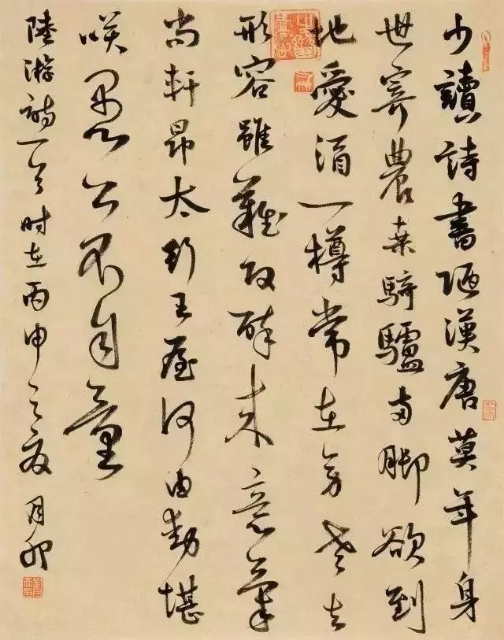 少讀詩書陋漢唐莫年身
世寄農桑騎驢兩脚欲到
地愛酒一樽常在旁老去
形容雖變改醉來意氣
尚軒昂太行王屋何由動堪
咲愚公不自量
陸游詩一首时在丙申之夏月卯